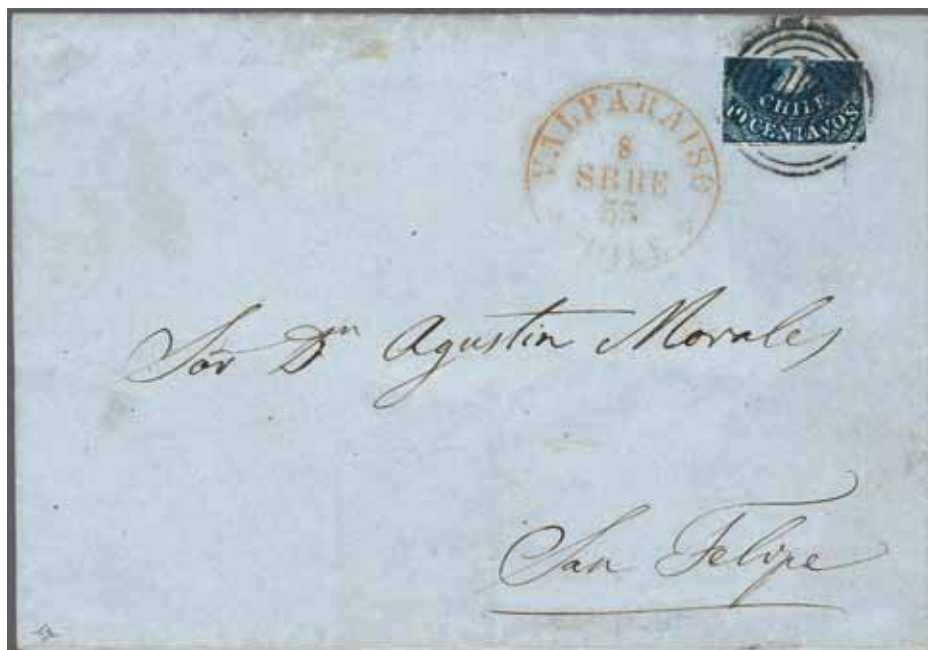 CHILE
10 CENTAVOS
VALPARAISO
8
SBRE
55
Sor Dn Agustin Morales
San Felipe